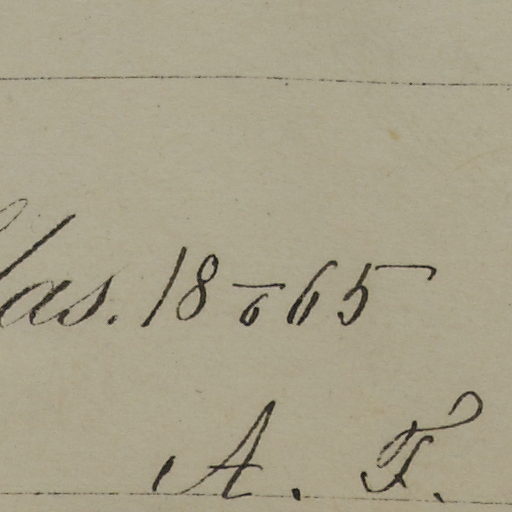 las. 18 6 65
A. F.